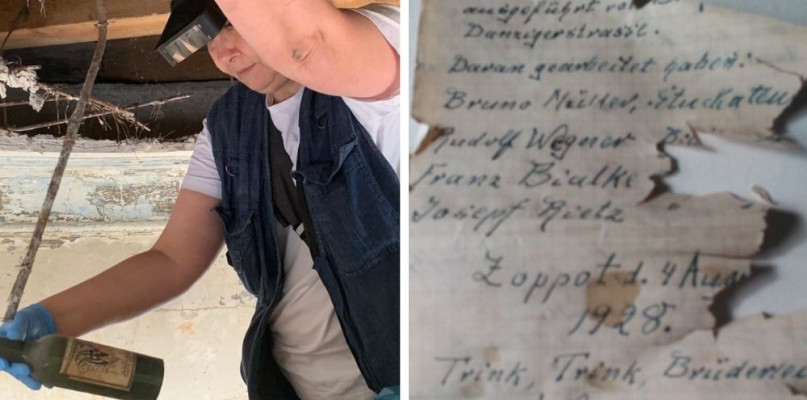 ausgeführt von
Danzigerstrasse.
Daran gearbeitet haben:
Bruno Müller, Stuckateu
Rudolf Wegner
Franz Bialke "
Josepf Rietz "
Zoppot d. 4 Aug
1928.
Trink, Trink, Brüderlei